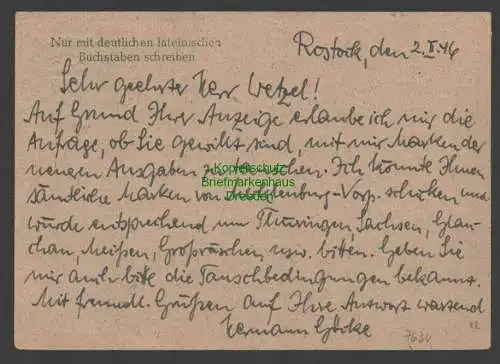 Nur mit deutlichen lateinischen
Buchstaben schreiben
Rostock, den 2.II.46
Sehr geehrter Herr Wetzel!
Auf Grund Ihrer Anzeige erlaube ich mir die
Anfrage, ob Sie gewillt sind, mit mir Marken der
neuen Ausgaben zu tauschen. Ich könnte Ihnen
sämtliche Marken von Mecklenburg-Vorp. schicken und
würde entsprechend um Thüringen, Sachsen, Glau-
chau, Meißen, Großräschen usw. bitten. Geben Sie
mir auch bitte die Tauschbedingungen bekannt.
Mit freundl. Grüßen auf Ihre Antwort wartend
Hermann
7634
Kopierschutz
Briefmarkenhaus
Dresden